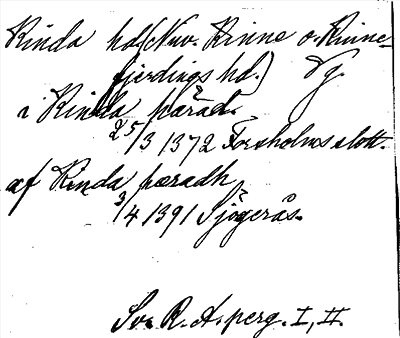 Rinda hd. (Nuv. Rinne o. Rinne-
fjerdings hd.) Vg.
i Rinda hærad.
25/3 1372 Forsholms slott.
af Rinda hæradh
3/4 1391 Sjögerås.
Sv. R. A. perg. I, II.